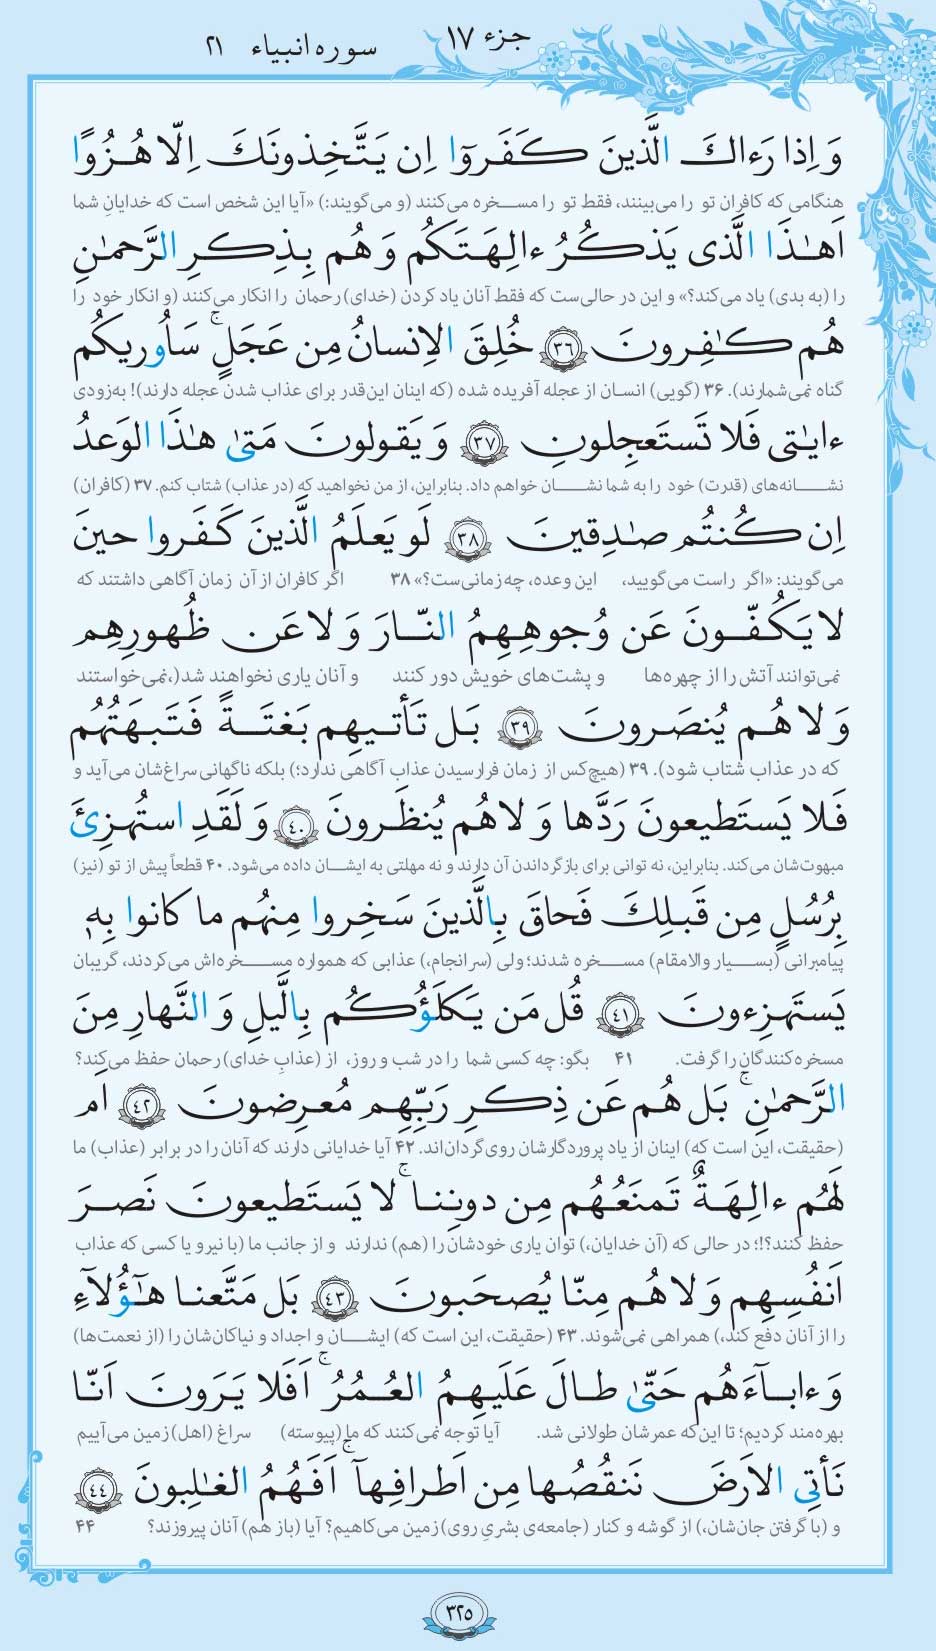 جزء ۱۷
سوره انبیاء ۲۱
وَ اِذا رَءاكَ الَّذينَ كَفَرو~ا اِن يَتَّخِذونَكَ اِلّا هُزُوًا
هنگامی که کافران تو را می‌بینند، فقط تو را مسخره می‌کنند (و می‌گویند:) «آیا این شخص است که خدایانِ شما
اَهـٰذَا الَّذى يَذكُرُ ءالِهَتَكُم وَ هُم بِذِكرِ الرَّحمـٰنِ
را (به بدی) یاد می‌کند؟» و این در حالی‌ست که فقط آنان یاد کردن (خدای) رحمان را انکار می‌کنند (و انکار خود را
هُم كـٰفِرونَ ﴿٣٦﴾ خُلِقَ الاِنسانُ مِن عَجَلٍ ۚ سَاُوريكُم
گناه نمی‌شمارند). ۳۶ (گویی) انسان از عجله آفریده شده (که اینان این‌قدر برای عذاب شدن عجله دارند)! به‌زودی
ءايـٰتى فَلا تَستَعجِلونِ ﴿٣٧﴾ وَ يَقولونَ مَتىٰ هـٰذَا الوَعدُ
نشانه‌های (قدرت) خود را به شما نشان خواهم داد. بنابراین، از من نخواهید که (در عذاب) شتاب کنم. ۳۷ (کافران)
اِن كُنتُم صـٰدِقينَ ﴿٣٨﴾ لَو يَعلَمُ الَّذينَ كَفَروا حينَ
می‌گویند: «اگر راست می‌گویید، این وعده، چه زمانی‌ست؟» ۳۸ اگر کافران از آن زمان آگاهی داشتند که
لا يَكُفّونَ عَن وُجوهِهِمُ النّارَ وَ لا عَن ظُهورِهِم
نمی‌توانند آتش را از چهره‌ها و پشت‌های خویش دور کنند و آنان یاری نخواهند شد(،نمی‌خواستند
وَ لا هُم يُنصَرونَ ﴿٣٩﴾ بَل تَأتيهِم بَغتَةً فَتَبهَتُهُم
که در عذاب شتاب شود). ۳۹ (هیچ‌کس از زمان فرارسیدن عذاب آگاهی ندارد؛) بلکه ناگهانی سراغ‌شان می‌آید و
فَلا يَستَطيعونَ رَدَّها وَ لا هُم يُنظَرونَ ﴿٤٠﴾ وَ لَقَدِ استُهزِئَ
مبهوت‌شان می‌کند. بنابراین، نه توانی برای بازگرداندن آن دارند و نه مهلتی به ایشان داده می‌شود. ۴۰ قطعاً پیش از تو (نیز)
بِرُسُلٍ مِن قَبلِكَ فَحاقَ بِالَّذينَ سَخِروا مِنهُم ما كانوا بِهٖ
پیامبرانی (بسیار والامقام) مسخره شدند؛ ولی (سرانجام،) عذابی که همواره مسخره‌اش می‌کردند، گریبان
يَستَهزِءونَ ﴿٤١﴾ قُل مَن يَكلَؤُكُم بِالَّيلِ وَ النَّهارِ مِنَ
مسخره‌کنندگان را گرفت. ۴۱ بگو: چه کسی شما را در شب و روز، از (عذابِ خدای) رحمان حفظ می‌کند؟
الرَّحمـٰنِ ۚ بَل هُم عَن ذِكرِ رَبِّهِم مُعرِضونَ ﴿٤٢﴾ اَم
(حقیقت، این است که) اینان از یاد پروردگارشان روی‌گردان‌اند. ۴۲ آیا خدایانی دارند که آنان را در برابر (عذاب) ما
لَهُم ءالِهَةٌ تَمنَعُهُم مِن دونِنا ۚ لا يَستَطيعونَ نَصرَ
حفظ کنند؟!؛ در حالی که (آن خدایان،) توان یاری خودشان را (هم) ندارند و از جانب ما (با نیرو یا کسی که عذاب
اَنفُسِهِم وَ لا هُم مِنّا يُصحَبونَ ﴿٤٣﴾ بَل مَتَّعنا هـٰٓؤُلآءِ
را از آنان دفع کند،) همراهی نمی‌شوند. ۴۳ (حقیقت، این است که) ایشان و اجداد و نیاکان‌شان را (از نعمت‌ها)
وَ ءابآءَهُم حَتّىٰ طالَ عَلَيهِمُ العُمُرُ ۚ اَفَلا يَرَونَ اَنّا
بهره‌مند کردیم؛ تا این‌که عمرشان طولانی شد. آیا توجه نمی‌کنند که ما (پیوسته) سراغ (اهل) زمین می‌آییم
نَأتِى الاَرضَ نَنقُصُها مِن اَطرافِهآ ۚ اَفَهُمُ الغـٰلِبونَ ﴿٤٤﴾
و (با گرفتن جان‌شان،) از گوشه و کنار (جامعه‌ی بشریِ روی) زمین می‌کاهیم؟ آیا (باز هم) آنان پیروزند؟ ۴۴
۳۲۵